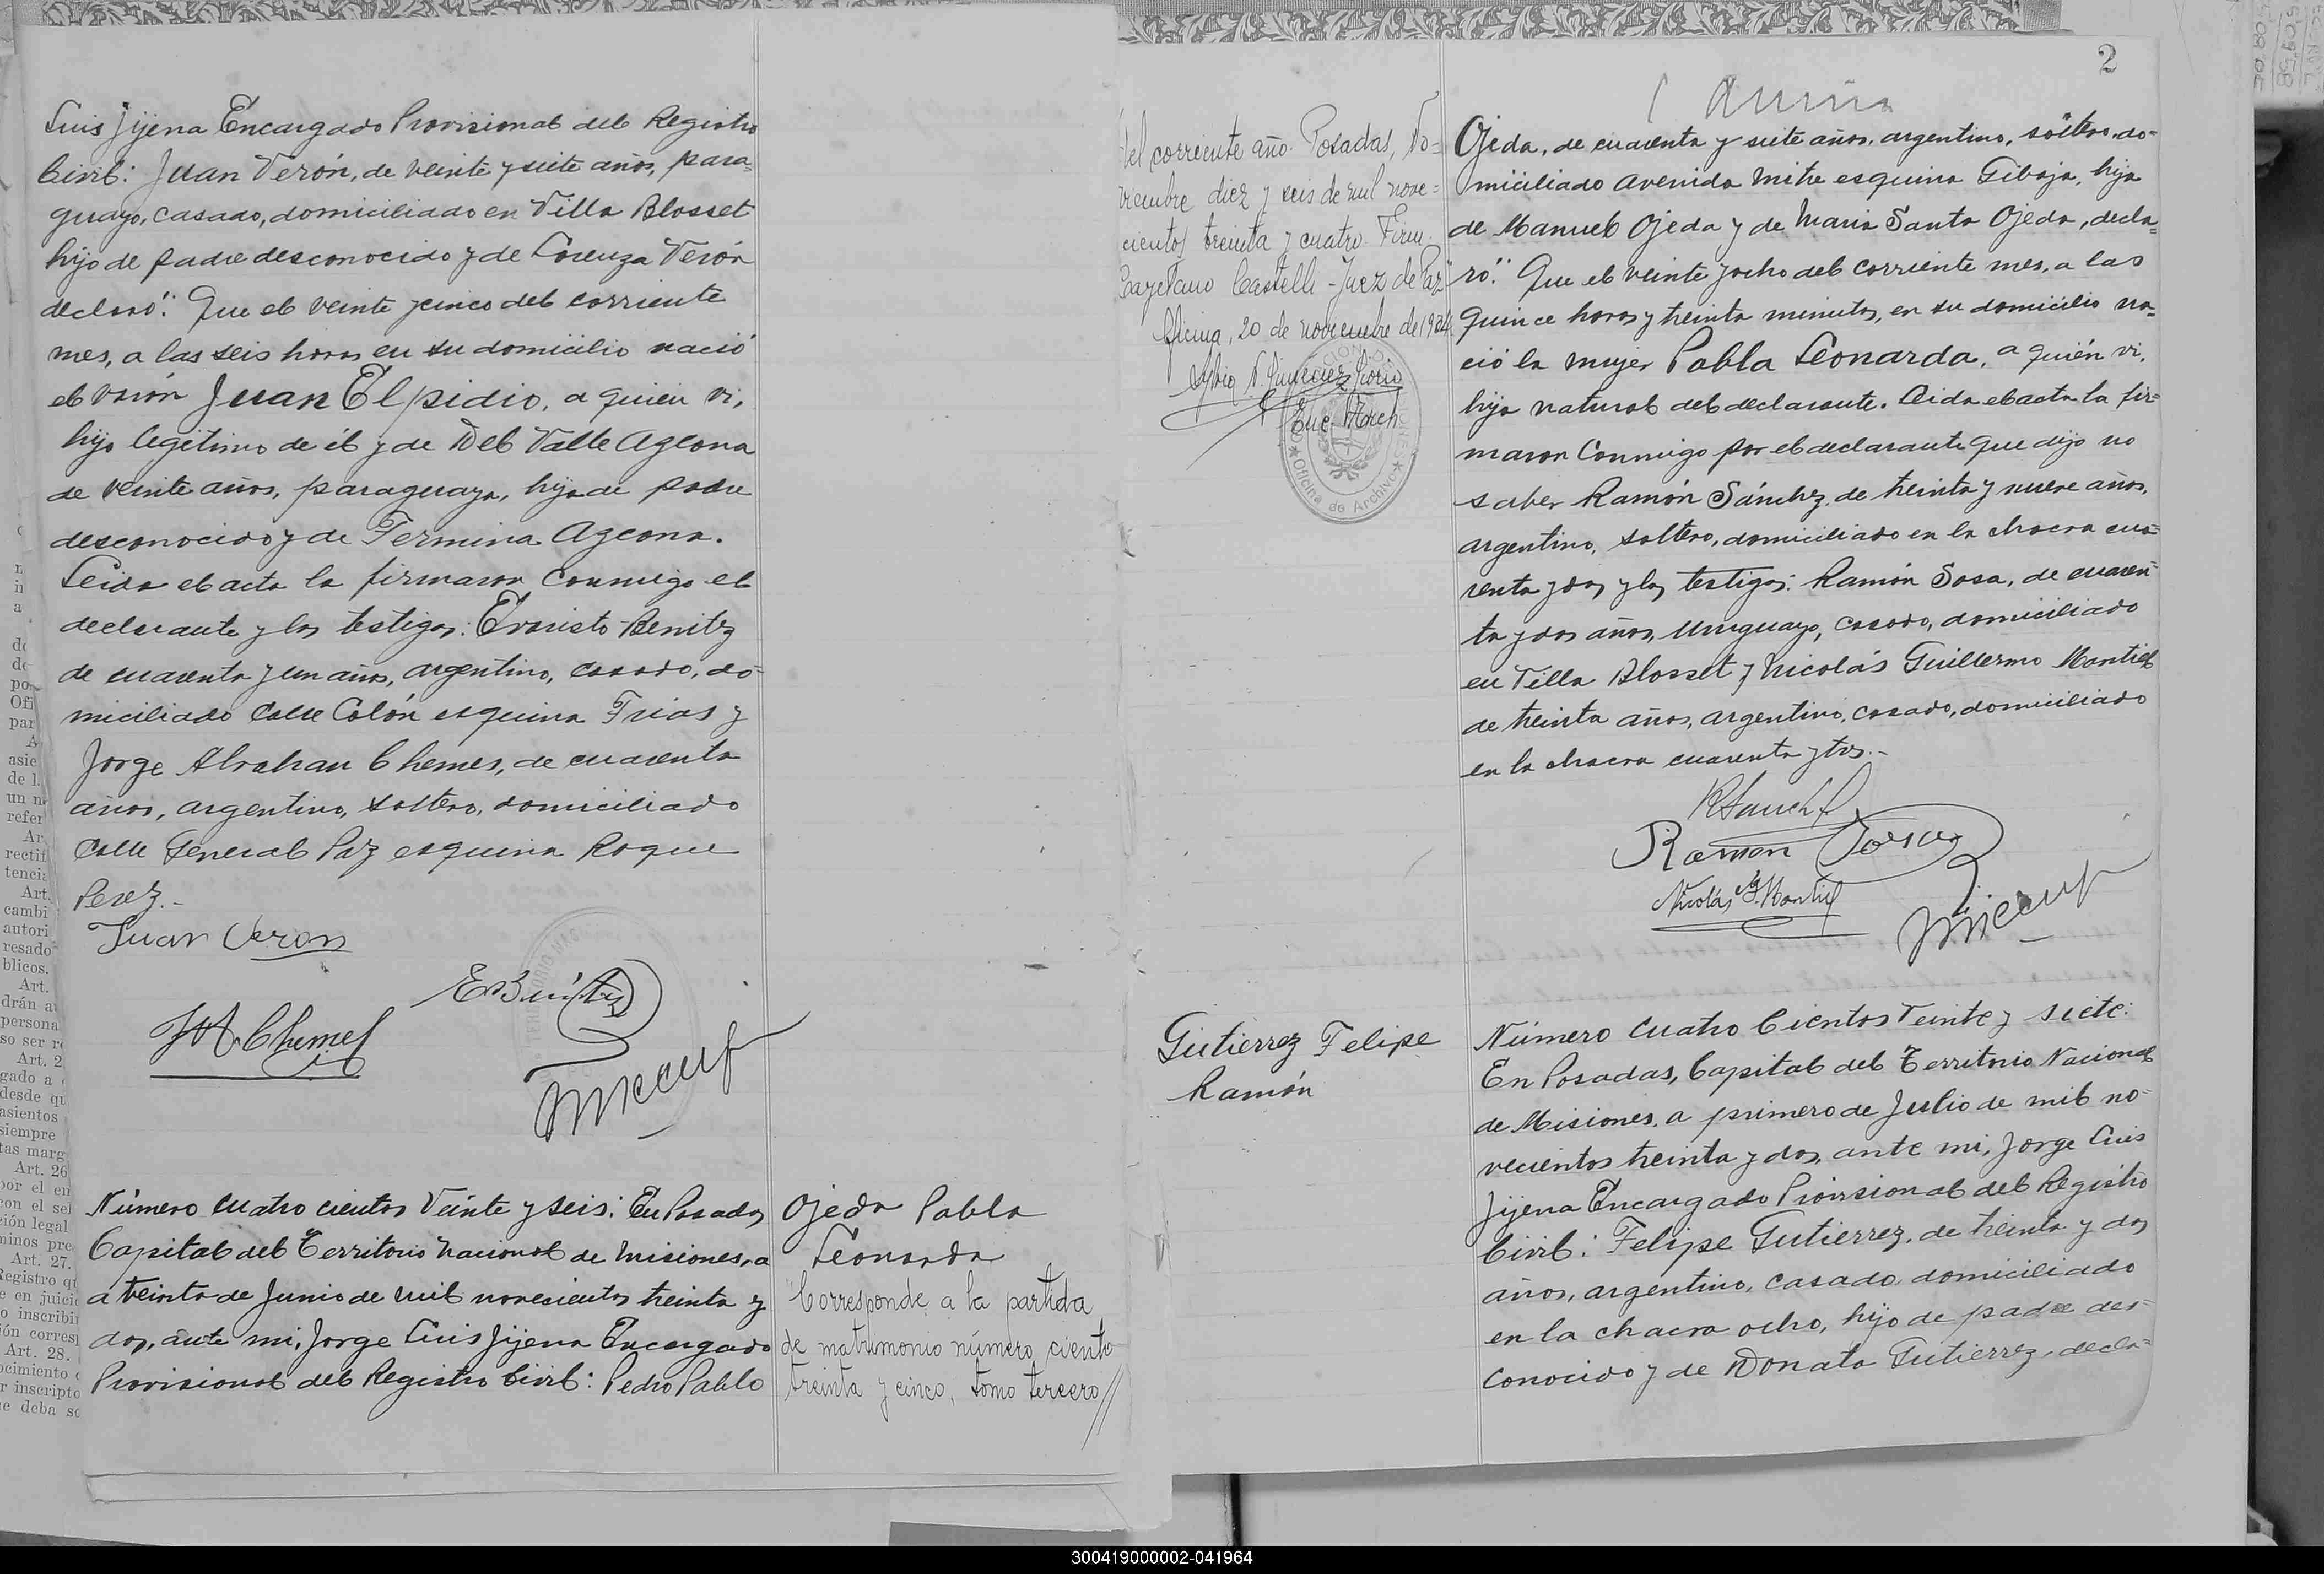 Luis Jijena Encargado Provisional del Registro
Civil: Juan Verón, de veinte y siete años, para=
guayo, casado, domiciliado en Villa Blosset
hijo de padre desconocido y de Lorenza Verón
declaró: Que el veinte y cinco del corriente
mes, a las seis horas en su domicilio nació
el varón Juan Elpidio, a quien vi,
hijo legítimo de él y de Del Valle Azcona
de veinte años, paraguaya, hija de padre
desconocido y de Fermina Azcona.
Leida el acta la firmaron conmigo el
declarante y los testigos: Evaristo Benitez
de cuarenta y un años, argentino, casado, do-
miciliado calle Colón esquina Frias y
Jorge Abrahan Chemes, de cuarenta
años, argentino, soltero, domiciliado
calle General Paz esquina Roque
Perez.-
Juan Veron
E Benítez
J A. Chemes
Número cuatro cientos Veinte y seis: En Posadas
Capital del Territorio Nacional de Misiones, a
a treinta de Junio de mil novecientos treinta y
dos, ante mi, Jorge Luis Jijena Encargado
Provisional del Registro Civil: Pedro Pablo
Ojeda Pabla
Leonarda
Corresponde a la partida
de matrimonio número ciento
treinta y cinco, tomo tercero//
2
del corriente año. Posadas, No=
viembre diez y seis de mil nove=
cientos treinta y cuatro. Firm.
Cayetano Castelli - Juez de Paz"
Oficina, 20 de noviembre de 1934
Enc. Arch
Oficina de Archivo
Ojeda, de cuarenta y siete años, argentino, soltero, do-
miciliado Avenida Mitre esquina Gibaja, hijo
de Manuel Ojeda y de Maria Santa Ojeda, decla=
ró: Que el veinte y ocho del corriente mes, a las
quince horas y treinta minutos, en su domicilio na=
ció la mujer Pabla Leonarda, a quién vi,
hija natural del declarante. Leida el acta la fir=
maron conmigo por el declarante que dijo no
saber Ramón Sánchez, de treinta y nueve años,
argentino, soltero, domiciliado en la chacra cua=
renta y dos y los testigos: Ramón Sosa, de cuaren=
ta y dos años, Uruguayo, casado, domiciliado
en Villa Blosset y Nicolás Guillermo Montiel
de treinta años, argentino, casado, domiciliado
en la chacra cuarenta y tres.-
R Sanchez
Ramon Sosa
Nicolás G. Montiel
Gutierrez Felipe
Ramón
Número Cuatro Cientos Veinte y siete:
En Posadas, Capital del Territorio Nacional
de Misiones, a primero de Julio de mil no-
vecientos treinta y dos, ante mi, Jorge Luis
Jijena Encargado Provisional del Registro
Civil: Felipe Gutierrez, de treinta y dos
años, argentino, casado domiciliado
en la chacra ocho, hijo de padre des-
conocido y de Donata Gutierrez, decla=
300419000002-041964